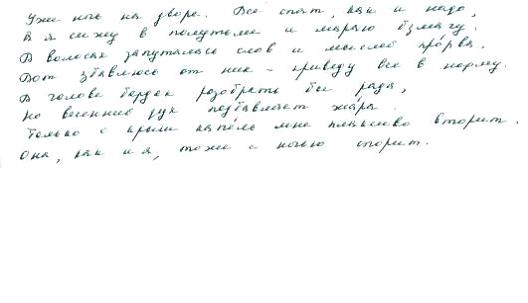 Уже ночь на дворе. Все спят, как и надо,
А я сижу в полутьме и мараю бумагу.
В волосах запуталась слов и мыслей прорва.
Вот избавлюсь от них - приведу все в норму.
В голове бардак разобрать бы рада,
Но весенний дух подбавляет жара.
Только с крыш капель мне плаксиво вторит.
Она, как и я, тоже с ночью спорит.